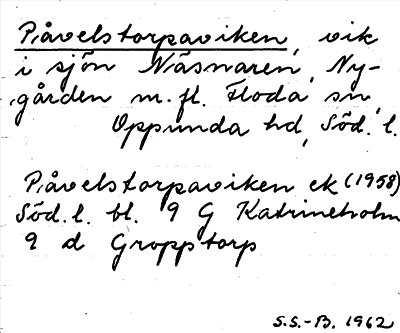 Påvelstorpaviken, vik
i sjön Näsnaren, Ny-
gården m. fl. Floda sn,
Oppunda hd, Söd. l.
Påvelstorpaviken ek (1958)
Söd. l. bl. 9 G Katrineholm
9 d Gropptorp
S.S.-B. 1962